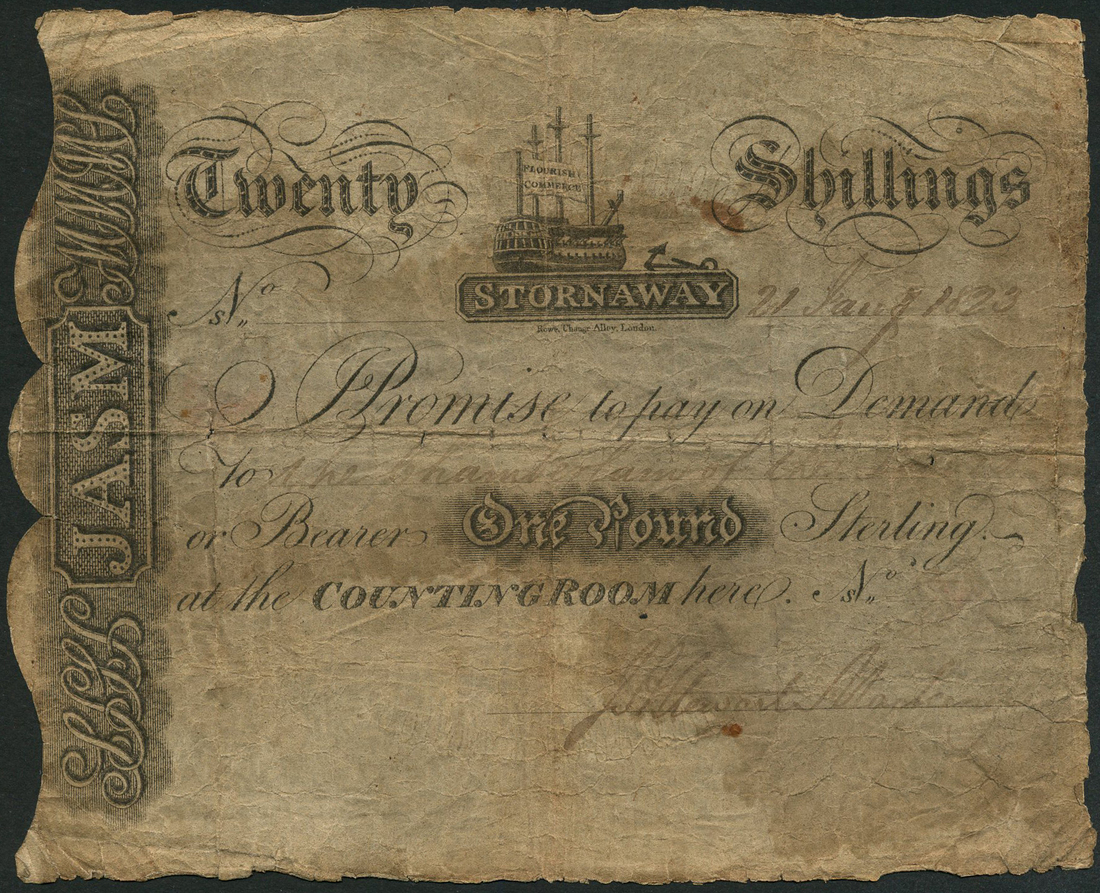 Twenty Shillings
FLOURISH
COMMERCE
STORNAWAY
Nos. 21 Jany 1823
Rowe, Change Alley, London.
I Promise to pay on Demand
To the of the
or Bearer One Pound Sterling.
at the COUNTING ROOM here. Nos.
JASM